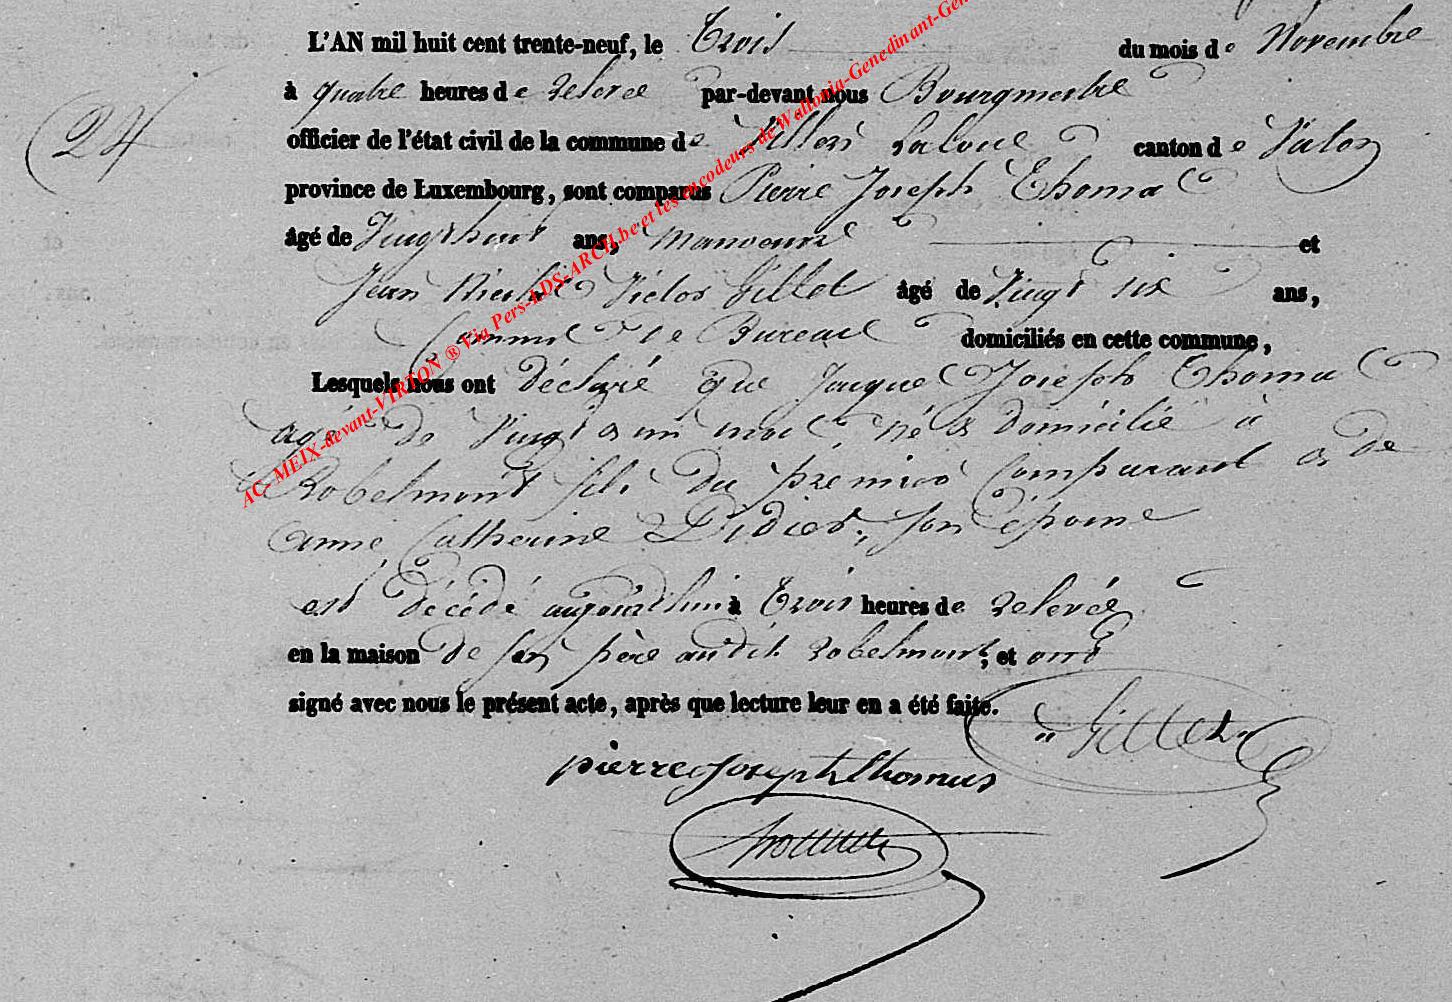 L'AN mil huit cent trente-neuf, le Trois du mois de Novembre
à quatre heures de relevée par-devant nous Bourgmestre
officier de l'état civil de la commune de Villers Laloue canton de Virton
province de Luxembourg, sont comparus Pierre Joseph Thomas
24
âgé de Vingt huit ans, manoeuvre et
Jean Victor Gillet âgé de Vingt six ans,
Commis de Bureau domiciliés en cette commune,
Lesquels nous ont déclaré que Jacques Joseph Thomas
agé de Vingt & un mois, né & domicilié à
Robelmont fils du premier Comparant & de
anne Catherine Didier, son épouse
est décédé aujourd'hui à Trois heures de relevée
en la maison de son père audit robelmont, et ont
signé avec nous le présent acte, après que lecture leur en a été faite.
Gillet
pierre Joseph thomas
AC. MEIX-devant-VIRTON ® Via Pers-LDS-ARCH.be et les encodeurs de Wallonia-Genedinant-Gen